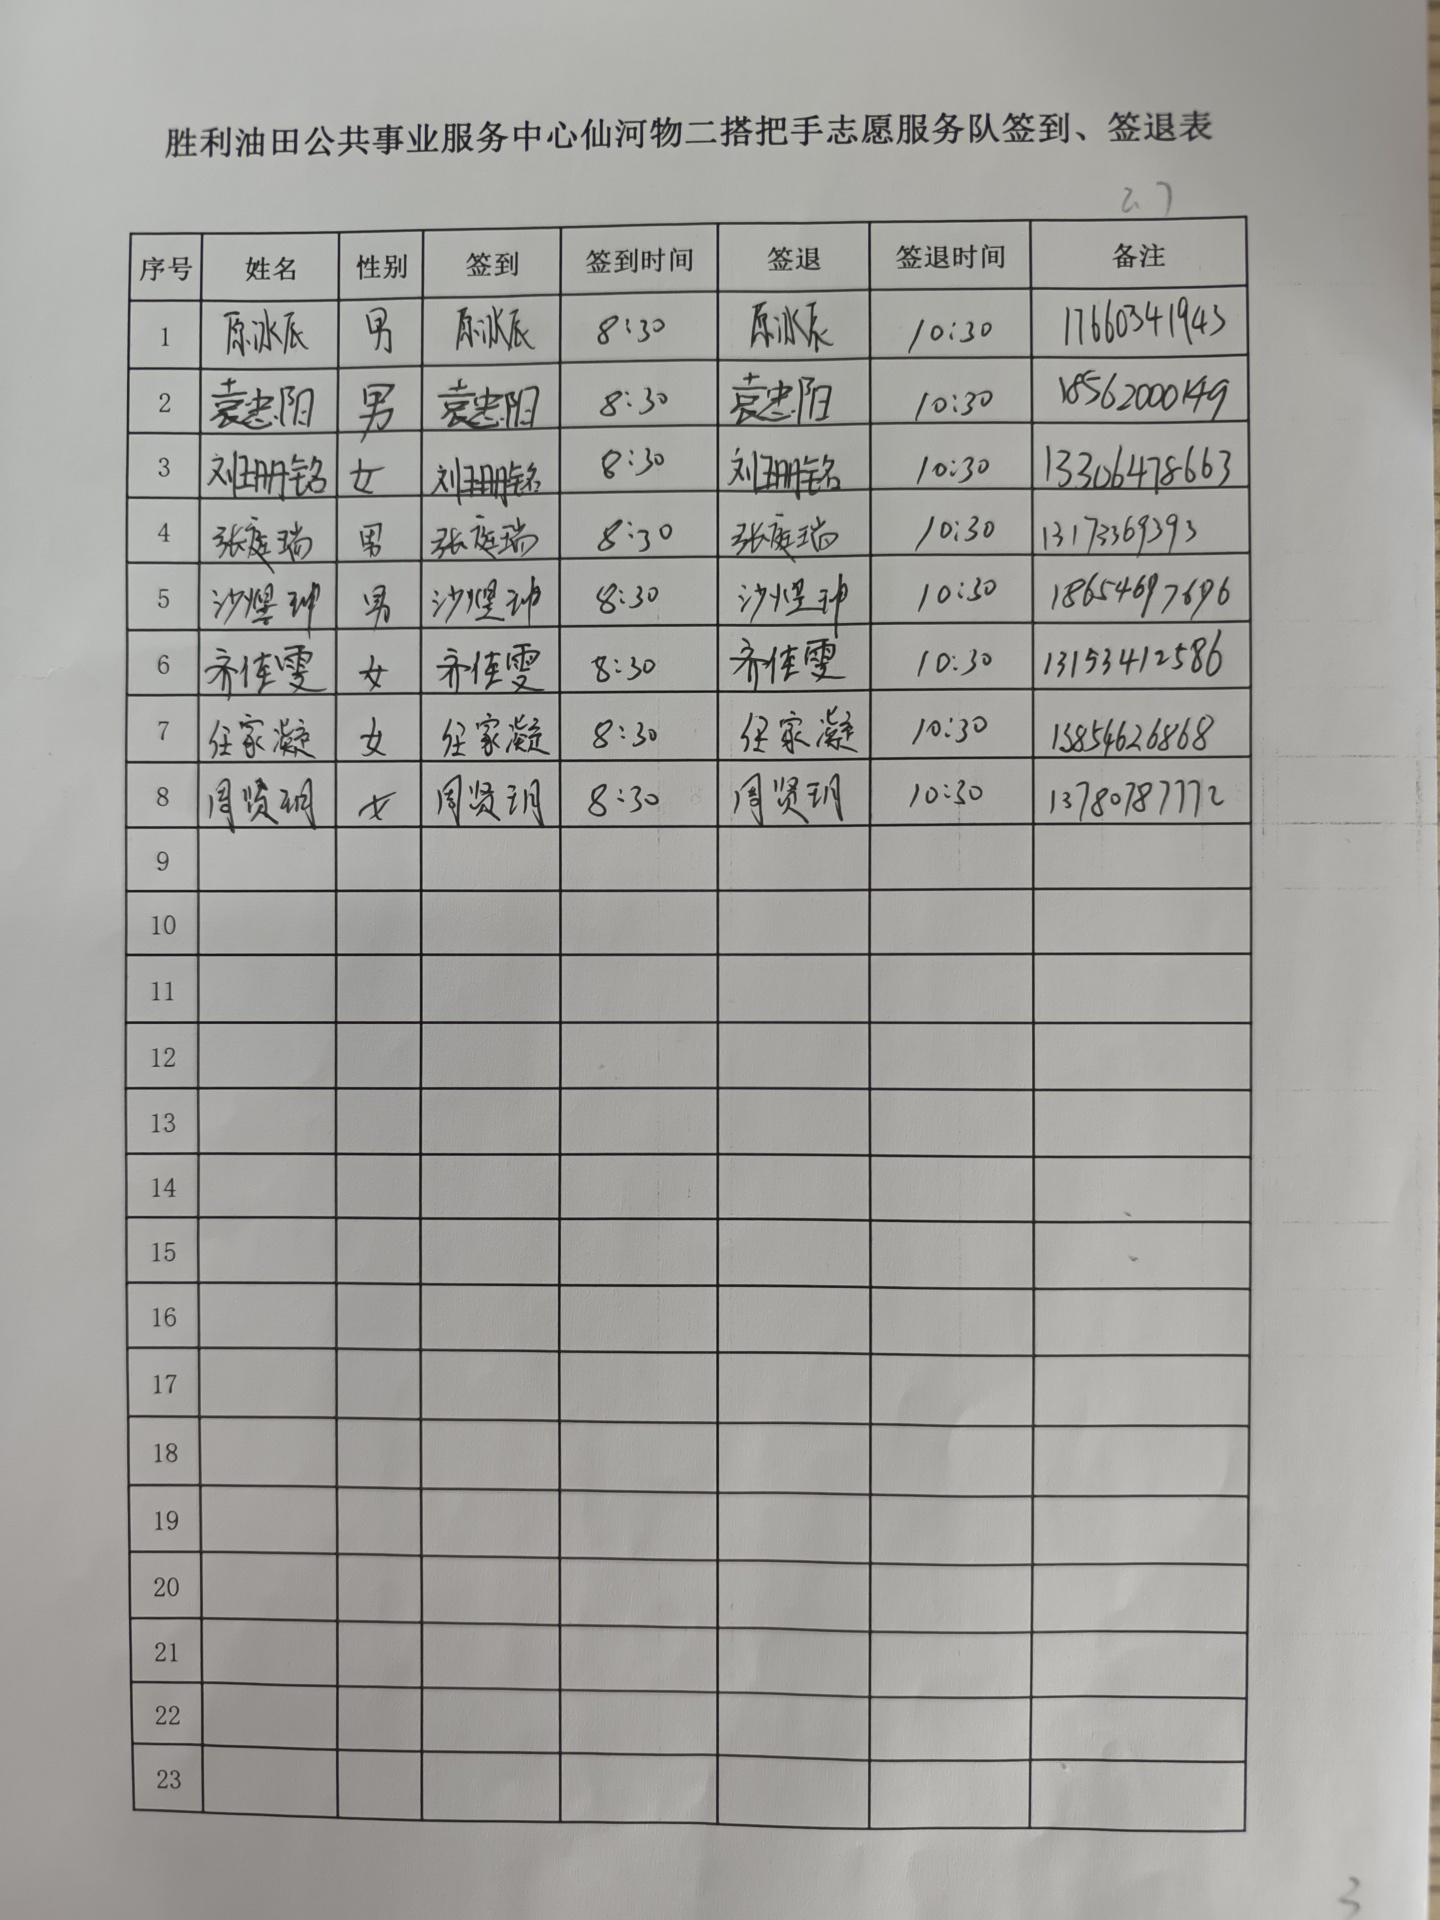 胜利油田公共事业服务中心仙河物二搭把手志愿服务队签到、签退表
2.7
序号 姓名 性别 签到 签到时间 签退 签退时间 备注
1 原冰辰 男 原冰辰 8:30 原冰辰 10:30 17660341943
2 袁忠阳 男 袁忠阳 8:30 袁忠阳 10:30 18562000149
3 刘珊铭 女 刘珊铭 8:30 刘珊铭 10:30 13306478663
4 张庭瑞 男 张庭瑞 8:30 张庭瑞 10:30 13173369393
5 沙煜珅 男 沙煜珅 8:30 沙煜珅 10:30 18654697696
6 齐佳雯 女 齐佳雯 8:30 齐佳雯 10:30 13153412586
7 任家凝 女 任家凝 8:30 任家凝 10:30 13854626868
8 周贤玥 女 周贤玥 8:30 周贤玥 10:30 13780787772
9
10
11
12
13
14
15
16
17
18
19
20
21
22
23
3